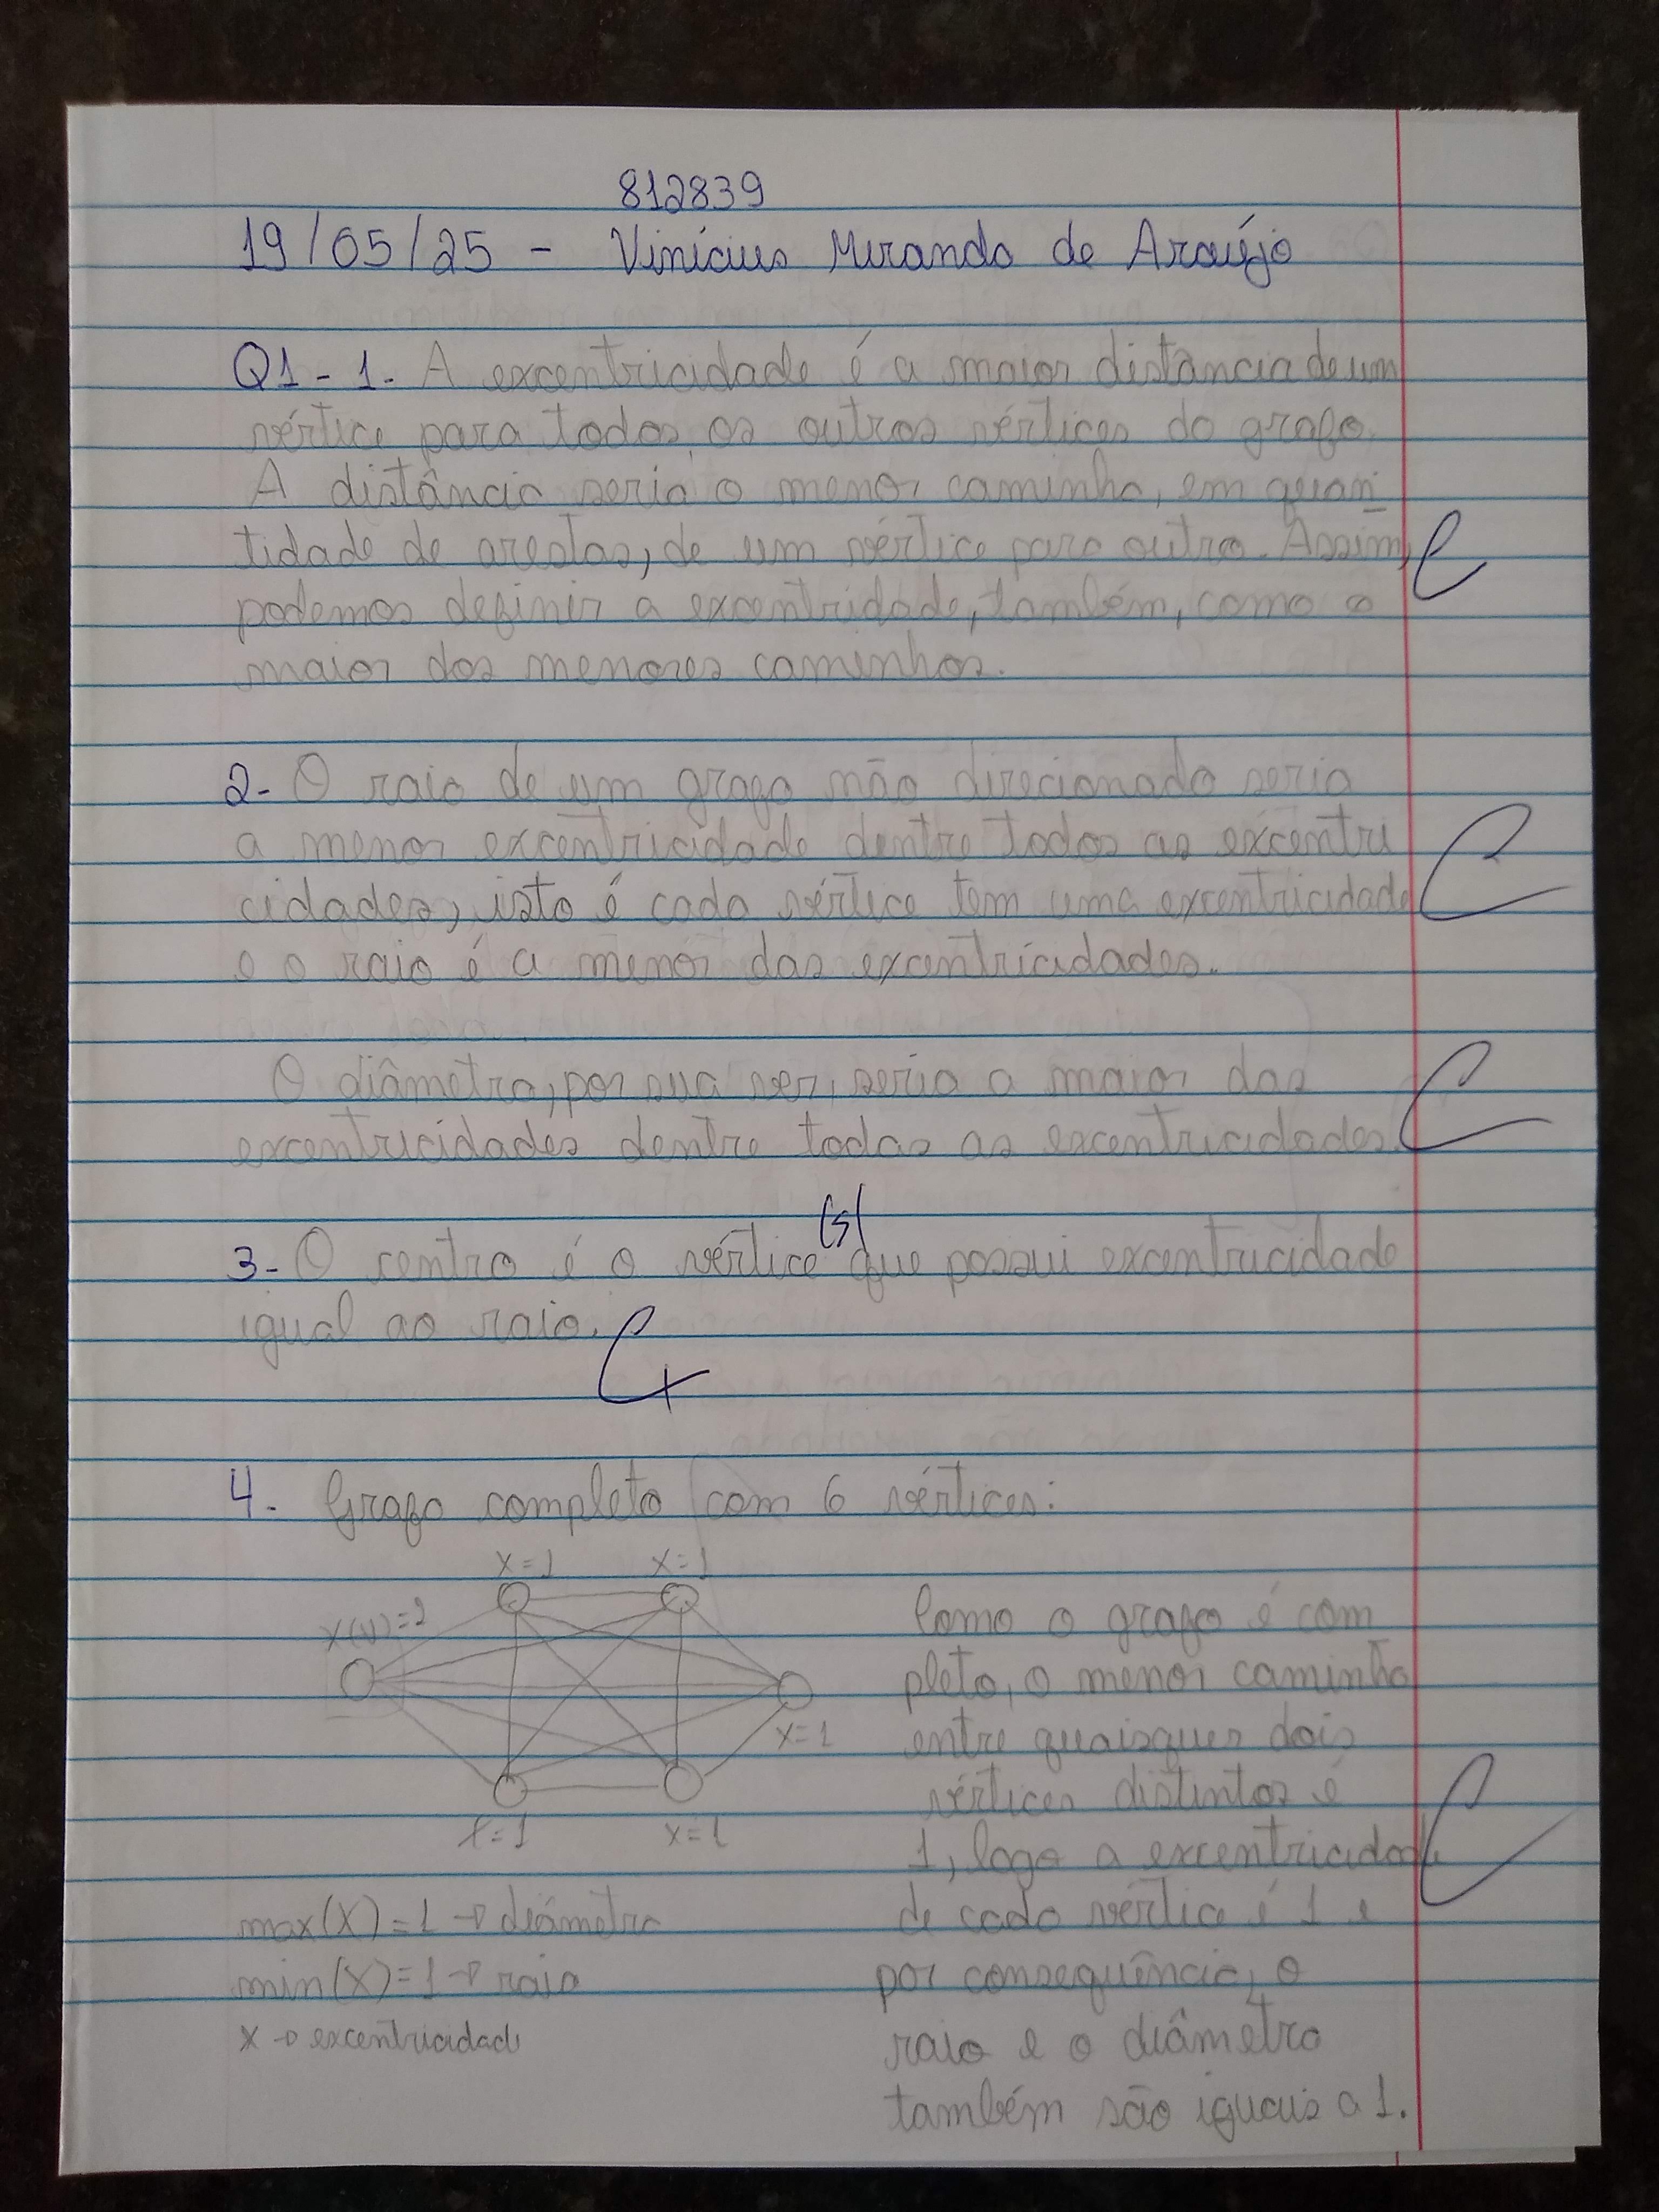 812839
19/05/25 - Vinícius Miranda de Araújo
Q1 - 1. A excentricidade é a maior distância de um
vértice para todos os outros vértices do grafo.
A distância seria o menor caminho, em quan
tidade de arestas, de um vértice para outro. Assim,
podemos definir a excentridade, também, como o
maior dos menores caminhos.
C
2- O raio de um grafo não direcionado seria
a menor excentricidade dentre todas as excentri
cidades, isto é cada vértice tem uma excentricidade
e o raio é a menor das excentricidades.
C
O diâmetro, por sua vez, seria a maior das
excentricidades dentre todas as excentricidades.
C
3- O centro é o vértice(s) que possui excentricidade
igual ao raio.
C
4. Grafo completo com 6 vértices:
x=1 x=1
x(v)=1
x=1
x=1 x=1
max(X)=1 → diâmetro
min(X)=1 → raio
x → excentricidade
Como o grafo é com
pleto, o menor caminho
entre quaisquer dois
vértices distintos é
1, logo a excentricidade
de cada vértice é 1 e
por consequência, o
raio e o diâmetro
também são iguais a 1.
C